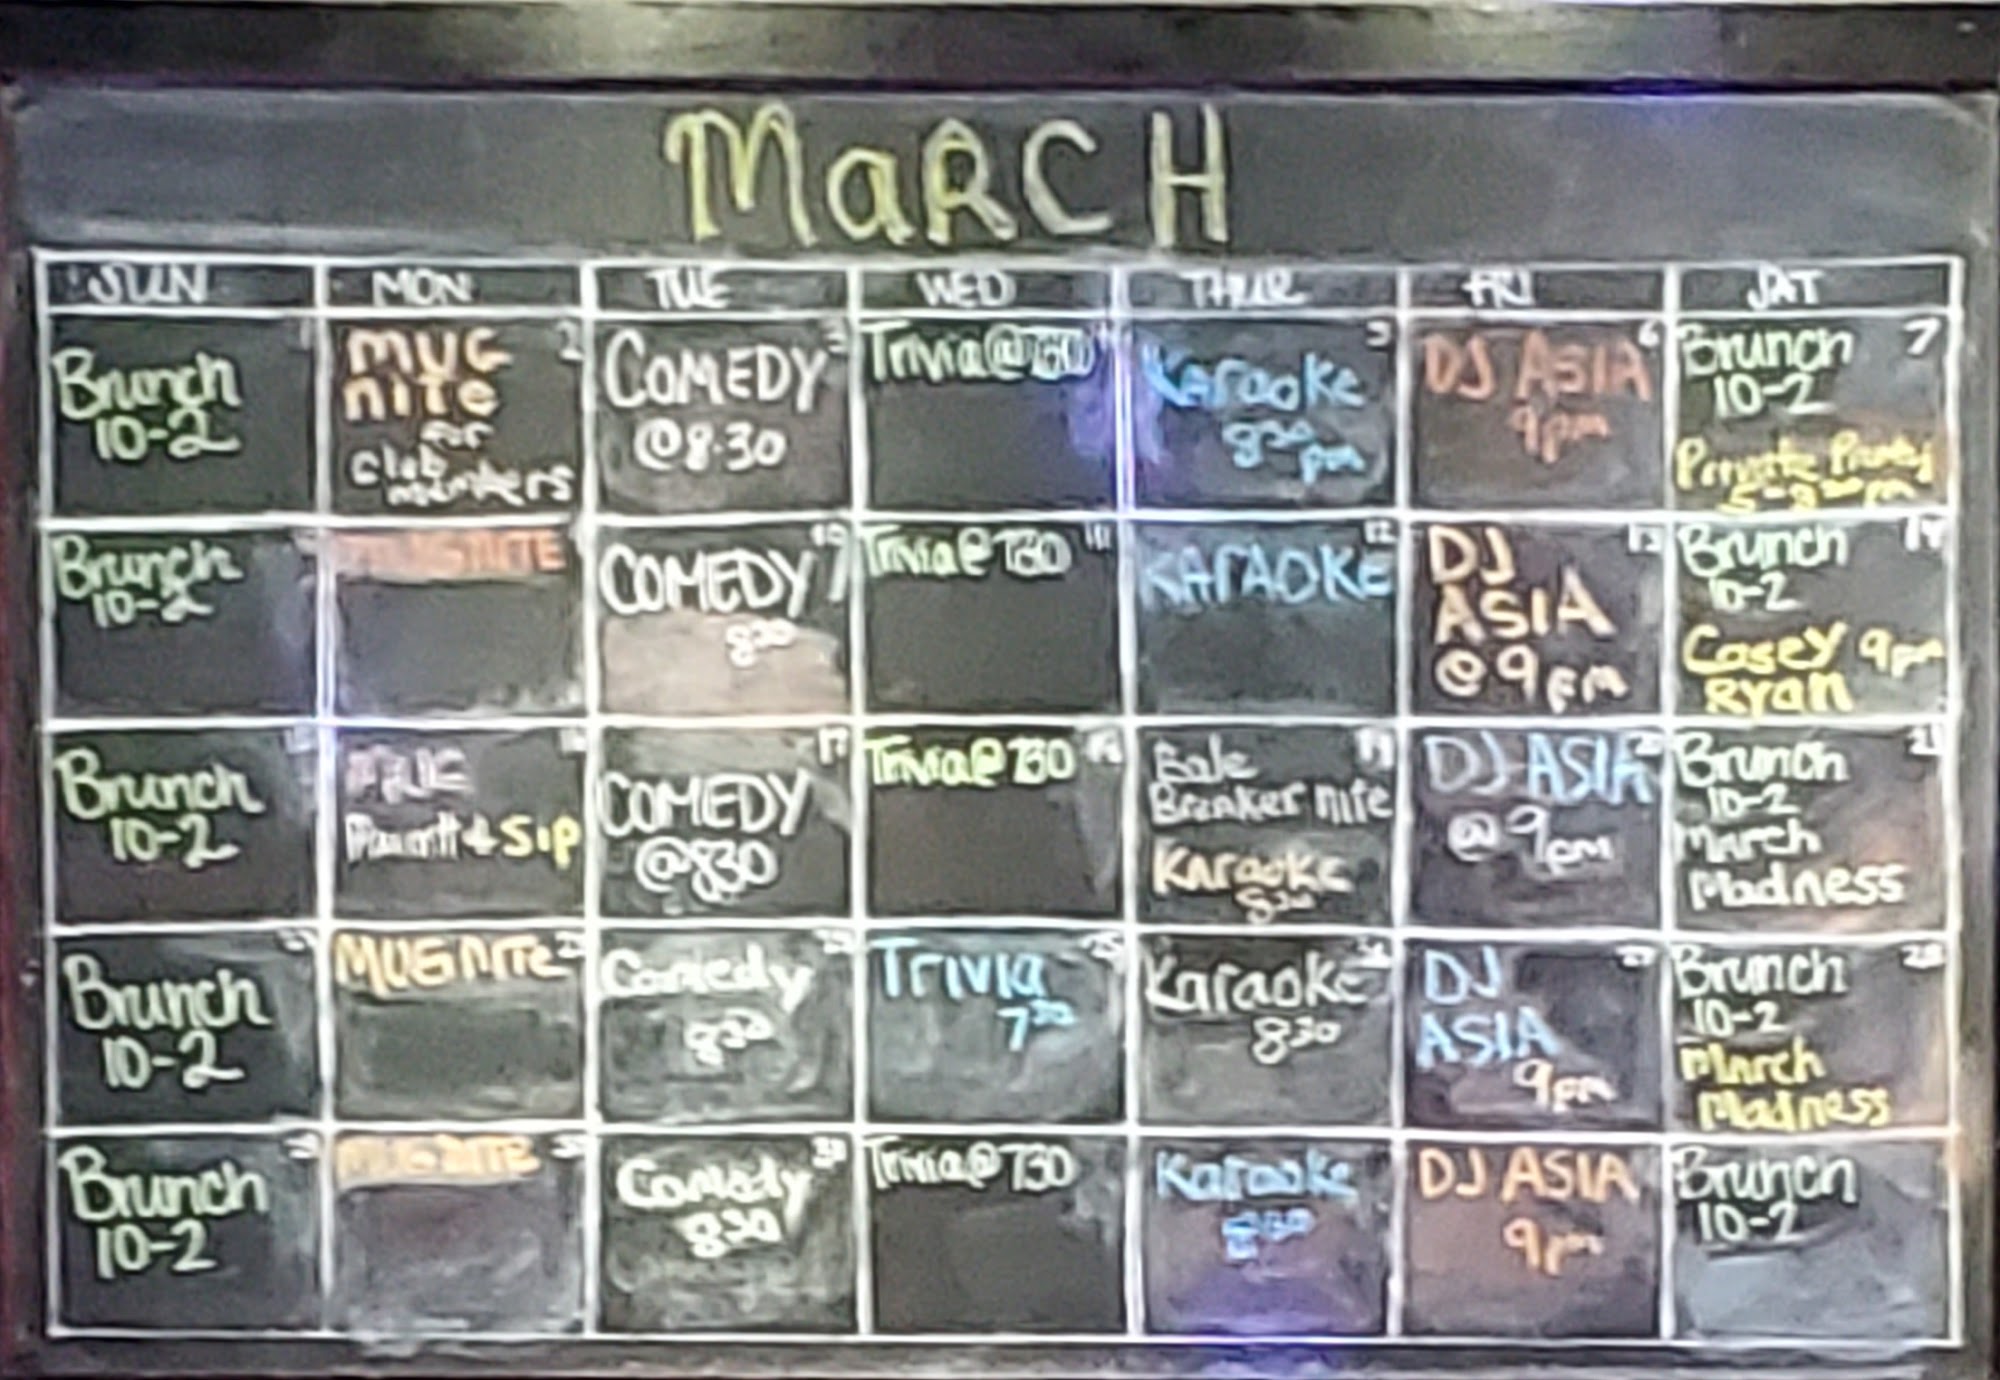 MaRCH
SUN MON TUE WED THUR FRI SAT
1 2 3 5 6 7
Brunch
10-2
MUG
nite
for
club
members
COMEDY
@8:30
Trivia@730
Karaoke
830
pm
DJ ASIA
9pm
Brunch
10-2
Private Party
10 11 12 13 14
Brunch
10-2
MUGNITE
COMEDY
830
Trivia@730
KARAOKE
DJ
ASIA
@9pm
Brunch
10-2
Casey 9pm
Ryan
17 19 21
Brunch
10-2
MUG
Paint & Sip
COMEDY
@830
Trivia@730
Bale
Breaker nite
Karaoke
830
DJ ASIA
@9pm
Brunch
10-2
March
Madness
25 28
Brunch
10-2
MUGNITE
Comedy
830
Trivia
730
Karaoke
830
DJ
ASIA
9pm
Brunch
10-2
March
Madness
Brunch
10-2
MUGNITE
Comedy
830
Trivia@730
Karaoke
830
DJ ASIA
9pm
Brunch
10-2